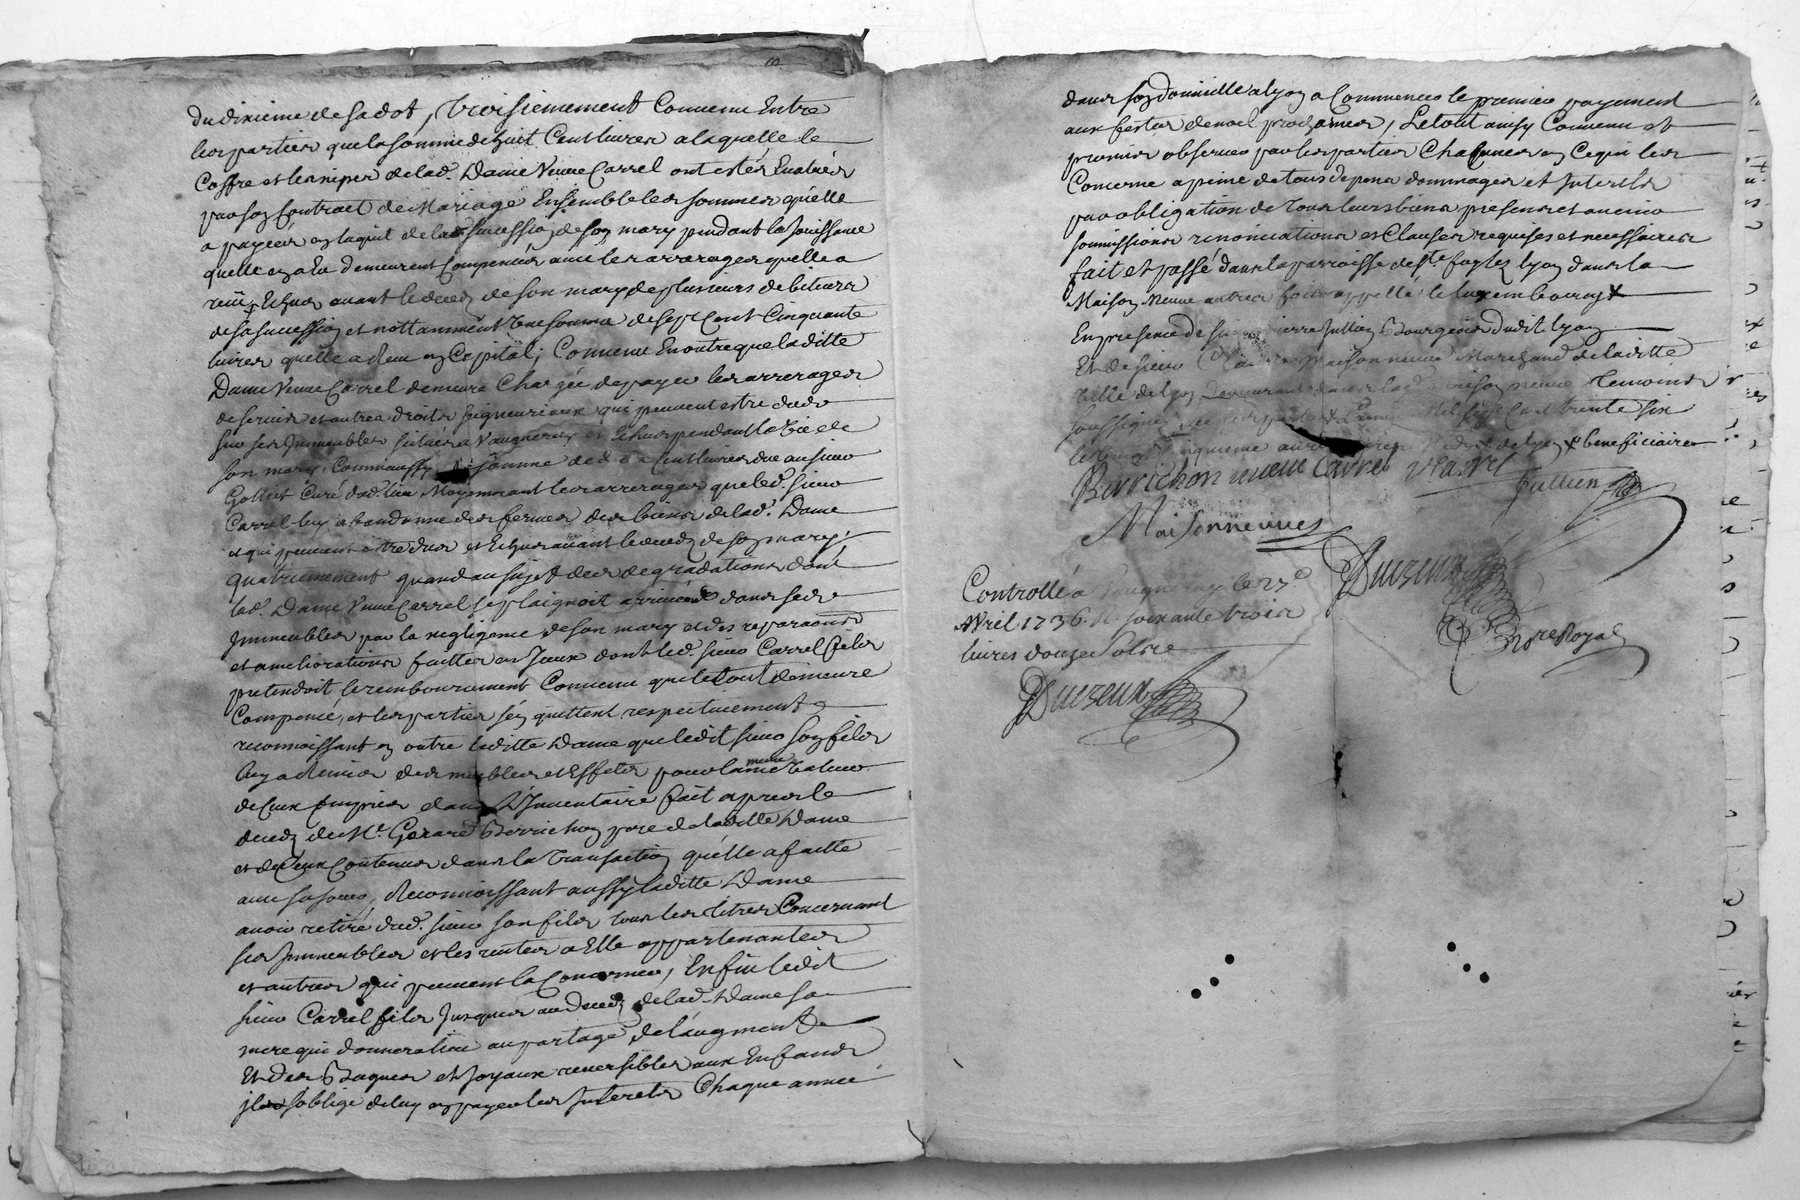 du dixieme de sa dot, troisiemement Convenu Entre
les parties que la somme de huit Cent livres a laquelle le
Coffre et les niper de lad. Dame Veuve Carrel ont estés Evalués
par son Contract de Mariage Ensemble les sommes quelle
a payeés en laquit de la succession de son mary pendant la Jouissance
quelle en a Eu demeurent Compencés avec les arrerages quelle a
reçu Echus avant le deceds de son mary de plusieurs debiteurs
de sa succession et nottamment une somme de sept Cent Cinquante
livres quelle a Reçu en Capital; Convenu En outre que laditte
Dame Veuve Carrel demeure Chargée de payer les arrerages
de servis et autres droits seigneuriaux qui peuvent estre deubs
sur ses Immeubles situés a Vaugneray et Echus pendant la Vie de
son mary, Comm'aussy somme de Cent livres due au sieur
Curé dud. lieu Moyennant les arrerages que led. sieur
Carrel luy abandonne des fermes des biens de lad. Dame
et qui peuvent estre dus et Echus avant le deceds de son mary;
quatriemement quand au sujet des degradations dont
lad. Dame Veuve Carrel se plaignoit arrivées dans ses
Immeubles par la negligence de son mary et des reparaons
et ameliorations faittes en Iceux dont led. sieur Carrel fils
pretendoit le remboursement Convenu que le tout demeure
Compencé, et les parties s'en quittent respectivement
reconnoissant en outre laditte Dame que ledit sieur son fils
luy a Remis des meubles et Effets pour la meme Valeur
de Ceux Compris dans L'Inventaire fait apres le
deceds de Mr. Gerard Berrichon pere de laditte Dame
et de Ceux Contenus dans la Transaction quelle a faitte
avec sa soeur, Reconnoissant aussy laditte Dame
avoir retiré dud. sieur son fils tous les titres Concernant
ses Immeubles et les rentes a Elle appartenantes
et autres qui peuvent la Concerner, Enfin ledit
sieur Carrel fils Jusques au deceds de lad. Dame sa
mere qui donnera lieu au partage de l'augment
Et des Bagues et Joyaux reversibles aux Enfants
s'oblige de luy en payer les Interets Chaque année
dans son domicille a lyon a Commencer le premier payement
aux festes de noel prochaines, Le tout ainsy Convenu et
promis observer par les parties Chacunes en Ce qui les
Concerne a peine de tous depens dommages et Interets
par obligation de tous leurs biens presents et avenir
soumissions renonciations et Clauses requises et necessaires
fait et passé dans la parroisse de ste. foy les lyon dans la
Maison Neuve autres fois appellé le luxembourg x
En presence de sieur Pierre Jullien Bourgeois dudit lyon
Et de sieur Maisonneuve Marchand de laditte
Ville de lyon Demeurant dans lad. maison neuve Temoins
soussignés avec les parties Mil sept Cent trente six
le vingt Cinquieme avril x beneficiaires
Berrichon veuve Carrel Carrel
Jullien
Maisonneuves
Duczeux
Controllé a Vaugneray le 27e
Avril 1736. R soixante trois
livres douze sols
Duczeux
Nore Royal